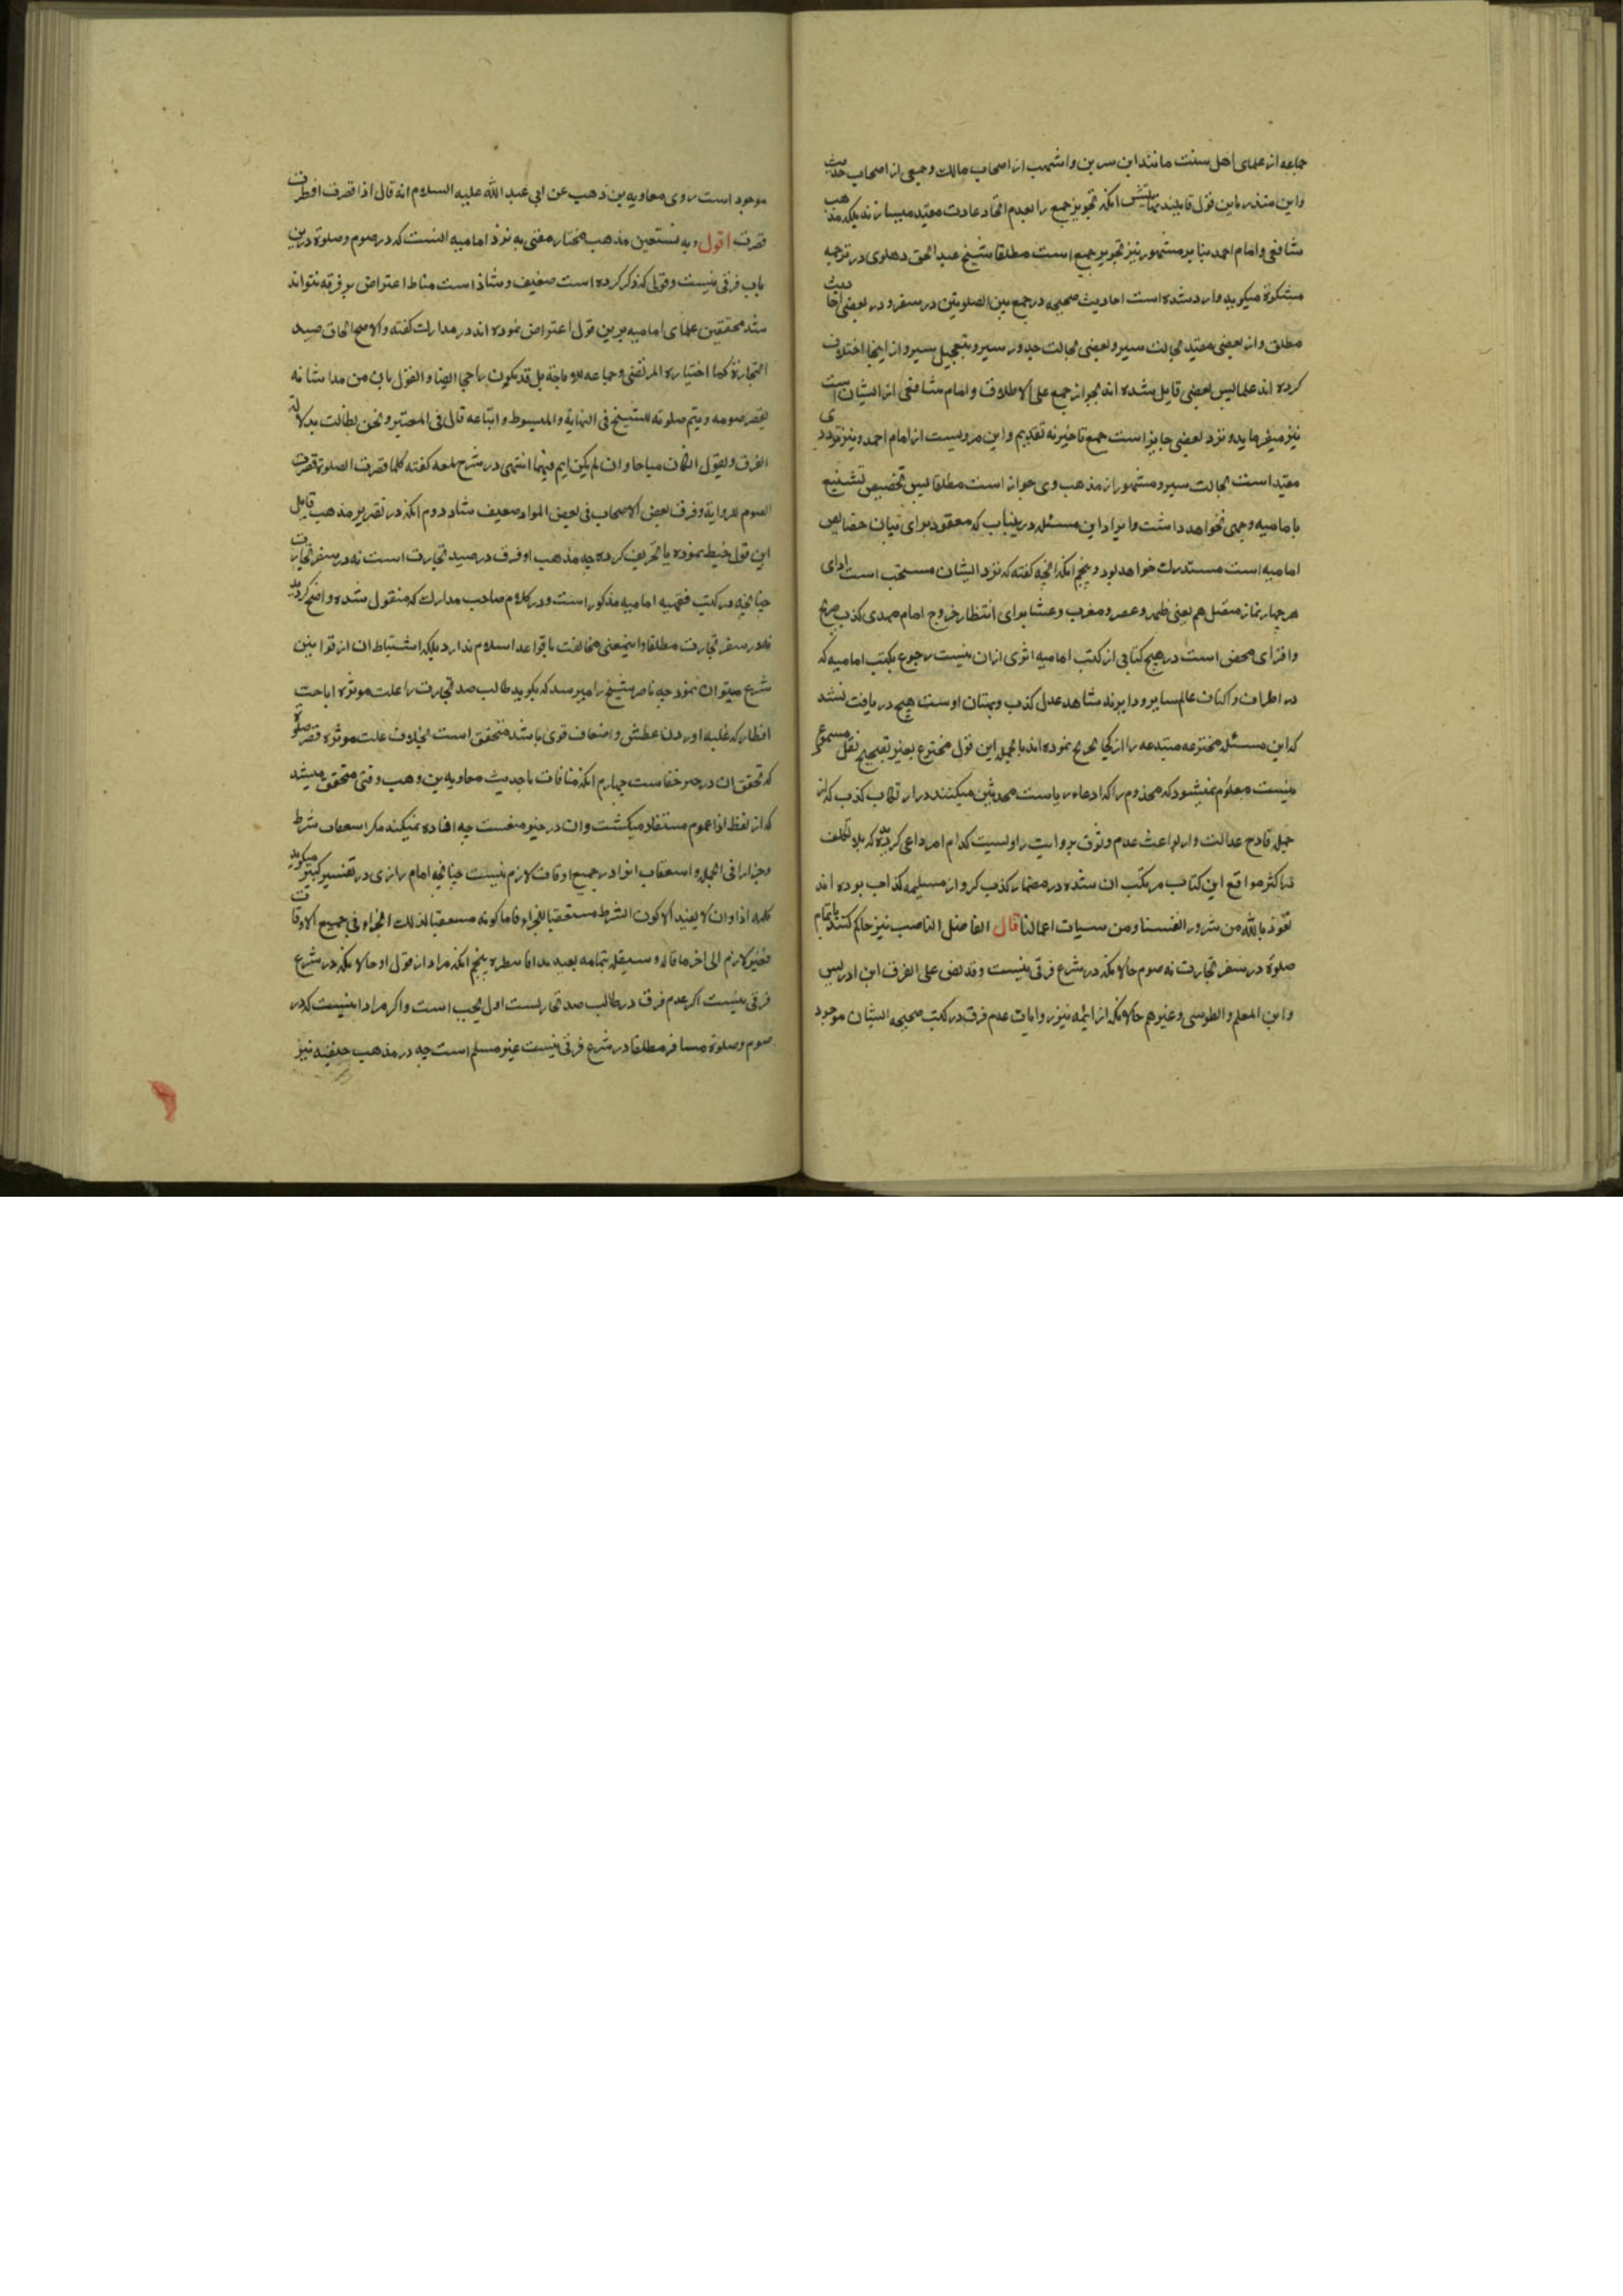 جماعه از علمای اهل سنت مانند ابن سرین و اشهب از اصحاب مالک و جمعی از اصحاب حدیث
و ابن منذر باین قول قایلند انکه تجویز جمع را بعدم اتخاد عادت مقید میسازند بلکه مذهب
شافعی و امام احمد بنابر مشهور نیز تجویز جمع است مطلقا شیخ عبد الحق دهلوی در ترجمه
مشکوة میکوید وارد شده است احادیث صحیحه در جمع بین الصلوتین در سفر و در بعضی احادیث
مطلق و از بعضی مقید بحالت سیر و بعضی بحالت جد در سیر و بتعجیل سیر و از اینجا اختلاف
کرده اند علما پس بعضی قایل شده اند بجواز جمع علی الاطلاق و امام شافعی از ایشان است
نیز میفرماید و نزد بعضی جایز است جمع تاخیر نه تقدیم و این مرویست از امام احمد و نیز نزد وی
مقید است بحالت سیر و مشهور از مذهب وی جواز است مطلقا پس تخصیص تشنیع
بامامیه وجهی نخواهد داشت و ایراد این مسئله درینباب که معقود برای بیان خصایص
امامیه است مستدرک خواهد بود و پنجم انکه انچه کفته که نزد ایشان مستحب است ادای
هر چهار نماز متصل هم یعنی ظهر و عصر و مغرب و عشا برای انتظار خروج امام مهدی کذب صریح
و افترای محض است در هیچ کتابی از کتب امامیه اثری ازان نیست رجوع بکتب امامیه که
در اطراف و اکناف عالم سایر و دایرند شاهد عدل کذب و بهتان اوست هیچ دریافت نشد
که این مسئله مخترعه مبتدعه را از کجا نموده اند بالجمله این قول مخترع بغیر تصحیح نقل مسموع
نیست معلوم نمیشود که مخدوم را که ادعاء ریاست محدثین میکنند در ارتکاب کذب که از
جمله قادح عدالت و از بواعث عدم وثوق بروایت راویست کدام امر داعی کردیده که بلا تکلف
در اکثر مواقع این کتاب مرتکب ان شده در مضمار کذب کرو از مسیلمه کذاب بوده اند
نعوذ بالله من شرور انفسنا و من سیات اعمالنا قال الفاضل الناصب نیز حکم کنند باتمام
صلوة در سفر تجارت نه صوم حالانکه در شرع فرقی نیست و قد نص علی الفرق ابن ادریس
و ابن المعلم و الطوسی و غیرهم حالانکه از ائمه نیز روایات عدم فرق در کتب صحیحه ایشان موجود
موجود است روی معاویه بن وهب عن ابی عبد الله علیه السلام انه قال اذا قصرت افطرت
قصرت اقول و به نستعین مذهب مختار مفتی به نزد امامیه انست که در صوم و صلوة درین
باب فرقی نیست و قولی که ذکر کرده است ضعیف و شاذ است مناط اعتراض بر فرقه نتواند
شد محققین علمای امامیه برین قول اعتراض نموده اند در مدارک کفته و الاصح الحاق صید
التجارة کما اختیاره المرتضی و جماعه للاباحة بل قد یکون راجحا ایضا و القول بان من هذا شانه
یقصر صومه و یتم صلوته للشیخ فی النهایة و المبسوط و اتباعه قال فی المعتبر و نحن نطالبه بدلالة
الفرق و نقول ان کان مباحا و ان لم یکن اتم فیهما انتهی در شرح لمعه کفته کلما قصرت الصلوة قصرت
الصوم للروایة و فرق بعض الاصحاب فی بعض الموارد ضعیف شاذ دوم انکه در تقریر مذهب قایل
این قول خبط نموده یا تحریف کرده چه مذهب او فرق در صید تجارت است نه در سفر تجارت
چنانچه در کتب فقهیه امامیه مذکور است و در کلام صاحب مدارک که منقول شده واضح کردید
نه در سفر تجارت مطلقا و اینمعنی مخالفت باقواعد اسلام ندارد بلکه استنباط ان از قوانین
شرع میتوان نمود چه ناصر شیخ را میرسد که بکوید طالب صید تجارت را علت موثره اباحت
افطار که غلبه اوردن عطش و اضعاف قوی باشد متحقق است بخلاف علت موثره قصر صلوة
که تحقق ان در حیز خفاست چهارم انکه منافات با حدیث معاویه بن وهب وقتی متحقق میشد
که از لفظ اذا عموم مستفاد میکشت و ان در حیز منعست چه افاده نمیکند مکر استعقاب شرط
و جزا را فی الجمله و استعقاب انرا در جمیع اوقات لازم نیست چنانچه امام رازی در تفسیر کبیر میکوید
کلمه اذا و ان لا یفید الا کون الشرط مستعقبا للجزاء فاما کونه مستعقبا لذلک الجزاء فی جمیع الاوقات
فغیر لازم الی اخر ما قاله و سینقل بتمامه بعید هذا پنجم انکه مراد از قول او حالانکه در شرع
فرقی نیست اکر عدم فرق در طالب صید تجاریست اول بحث است و اکر مراد اینست که در
صوم و صلوة مسافر مطلقا در شرع فرقی نیست غیر مسلم است چه در مذهب حنفیه نیز